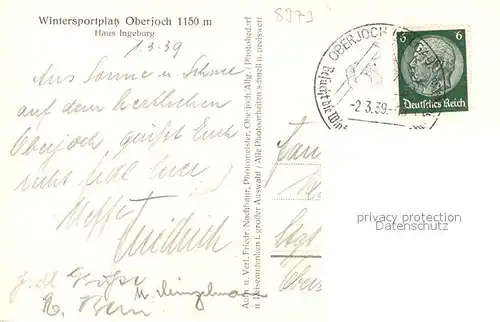 Wintersportplatz Oberjoch 1150 m
Haus Ingeburg
8973
1.3.39
Aus Sonne u. Schnee
auf dem herrlichen
Oberjoch, grüßt Euch
recht fidel Euer
Neffe
Friedrich
Frdl. Grüße
Autn. u. Verl. Friedr. Nachbaur, Photomeister, Oberjoch Allg. / Photobedarf
u. Reiseandenken i. großer Auswahl / Alle Photoarbeiten schnell u. preiswert
OBERJOCH
Besucht die
-2.3.39.-
6
6
Deutsches Reich
Fam
Stgt
privacy protection
Datenschutz